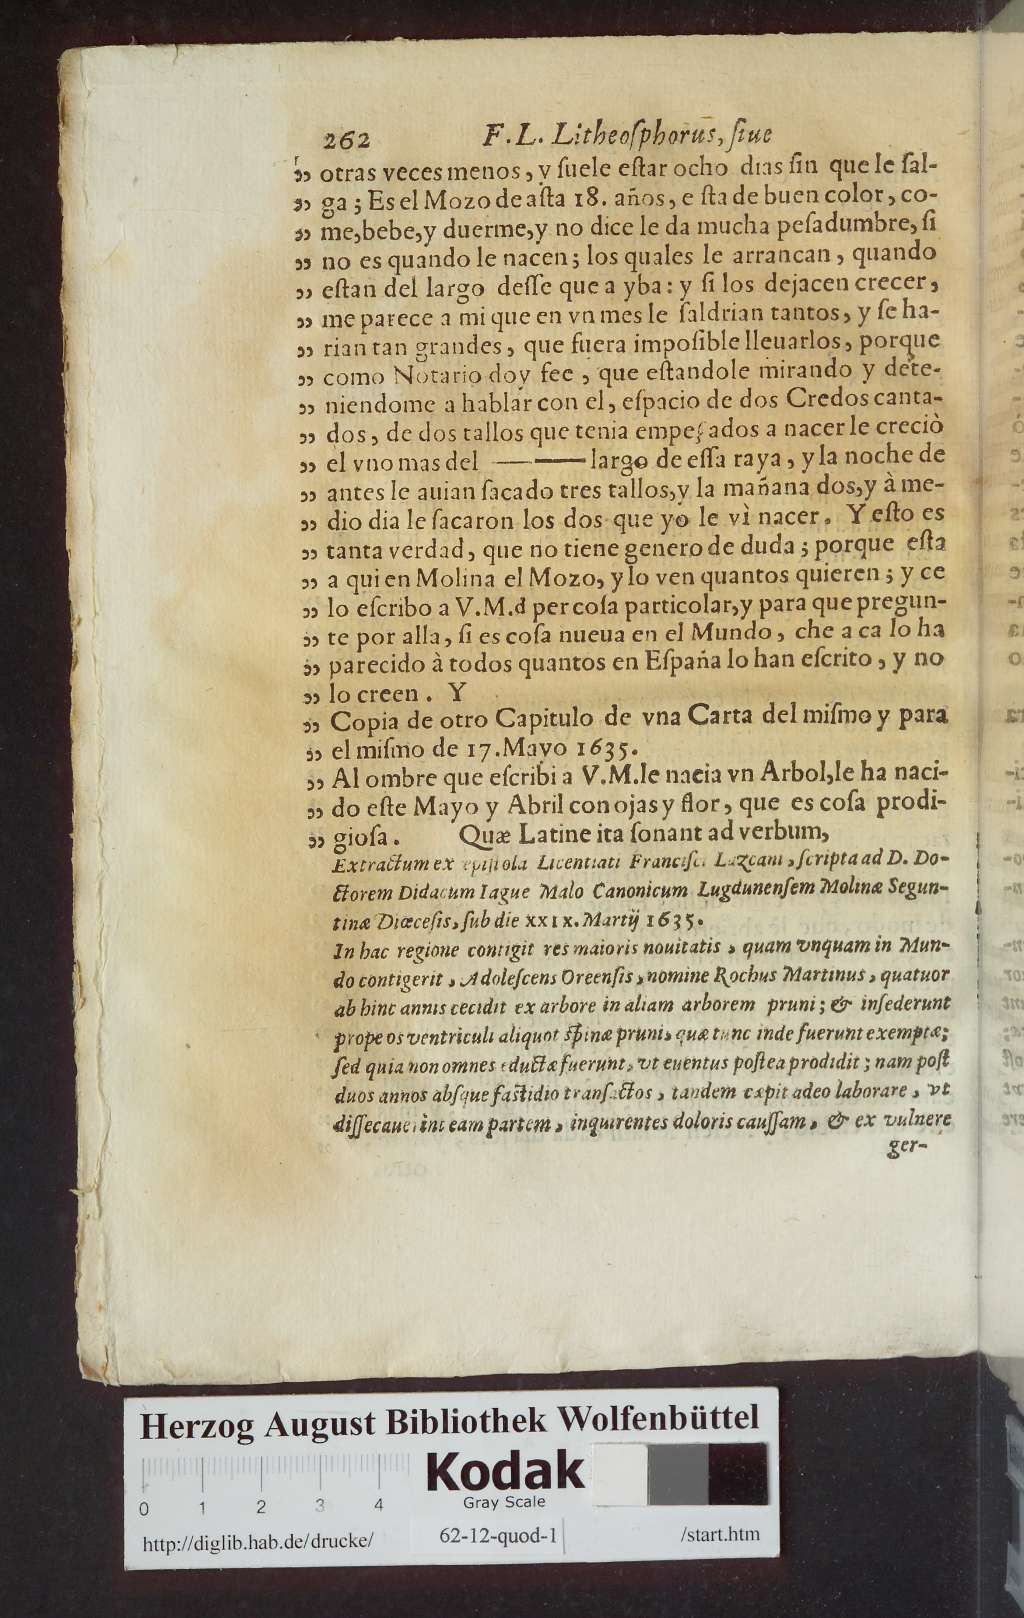 262 F. L. Litheoſphorus, ſiue
„ otras veces menos, y ſuele eſtar ocho dias ſin que le ſal-
„ ga; Es el Mozo de aſta 18. años, e ſta de buen color, co-
„ me,bebe,y duerme,y no dice le da mucha peſadumbre, ſi
„ no es quando le nacen; los quales le arrancan, quando
„ eſtan del largo deſſe que a yba: y ſi los dejacen crecer,
„ me parece a mi que en vn mes le ſaldrian tantos, y ſe ha-
„ rian tan grandes, que fuera impoſible lleuarlos, porque
„ como Notario doy fee, que eſtandole mirando y dete-
„ niendome a hablàr con el, eſpacio de dos Credos canta-
„ dos, de dos tallos que tenia empeçados a nacer le creciò
„ el vno mas del ———— largo de eſſa raya, y la noche de
„ antes le auian ſacado tres tallos,y la mañana dos,y à me-
„ dio dia le ſacaron los dos que yo le vì nacer. Y eſto es
„ tanta verdad, que no tiene genero de duda; porque eſta
„ a qui en Molina el Mozo, y lo ven quantos quieren; y ce
„ lo eſcribo a V.M.d per coſa particolar,y para que pregun-
„ te por alla, ſi es coſa nueua en el Mundo, che a ca lo ha
„ parecido à todos quantos en Eſpaña lo han eſcrito, y no
„ lo creen. Y
„ Copia de otro Capitulo de vna Carta del miſmo y para
„ el miſmo de 17. Mayo 1635.
„ Al ombre que eſcribi a V.M.le nacia vn Arbol,le ha naci-
„ do eſte Mayo y Abril con ojas y flor, que es coſa prodi-
„ gioſa. Quæ Latine ita ſonant ad verbum,
Extractum ex epiſtola Licentiati Franciſci Lazcani, ſcripta ad D. Do-
ctorem Didacum Iague Malo Canonicum Lugdunenſem Molinæ Segun-
tinæ Diœceſis, ſub die XXIX. Martij 1635.
In hac regione contigit res maioris nouitatis, quam vnquam in Mun-
do contigerit, Adoleſcens Oreenſis, nomine Rochus Martinus, quatuor
ab hinc annis cecidit ex arbore in aliam arborem pruni; & inſederunt
prope os ventriculi aliquot ſpinæ pruni, quæ tunc inde fuerunt exemptæ;
ſed quia non omnes eductæ fuerunt, vt euentus poſtea prodidit; nam poſt
duos annos abſque faſtidio tranſactos, tandem cæpit adeo laborare, vt
diſſecauerint eam partem, inquirentes doloris cauſſam, & ex vulnere
ger-
Herzog August Bibliothek Wolfenbüttel
Kodak
Gray Scale
0 1 2 3 4
http://diglib.hab.de/drucke/ 62-12-quod-1 /start.htm